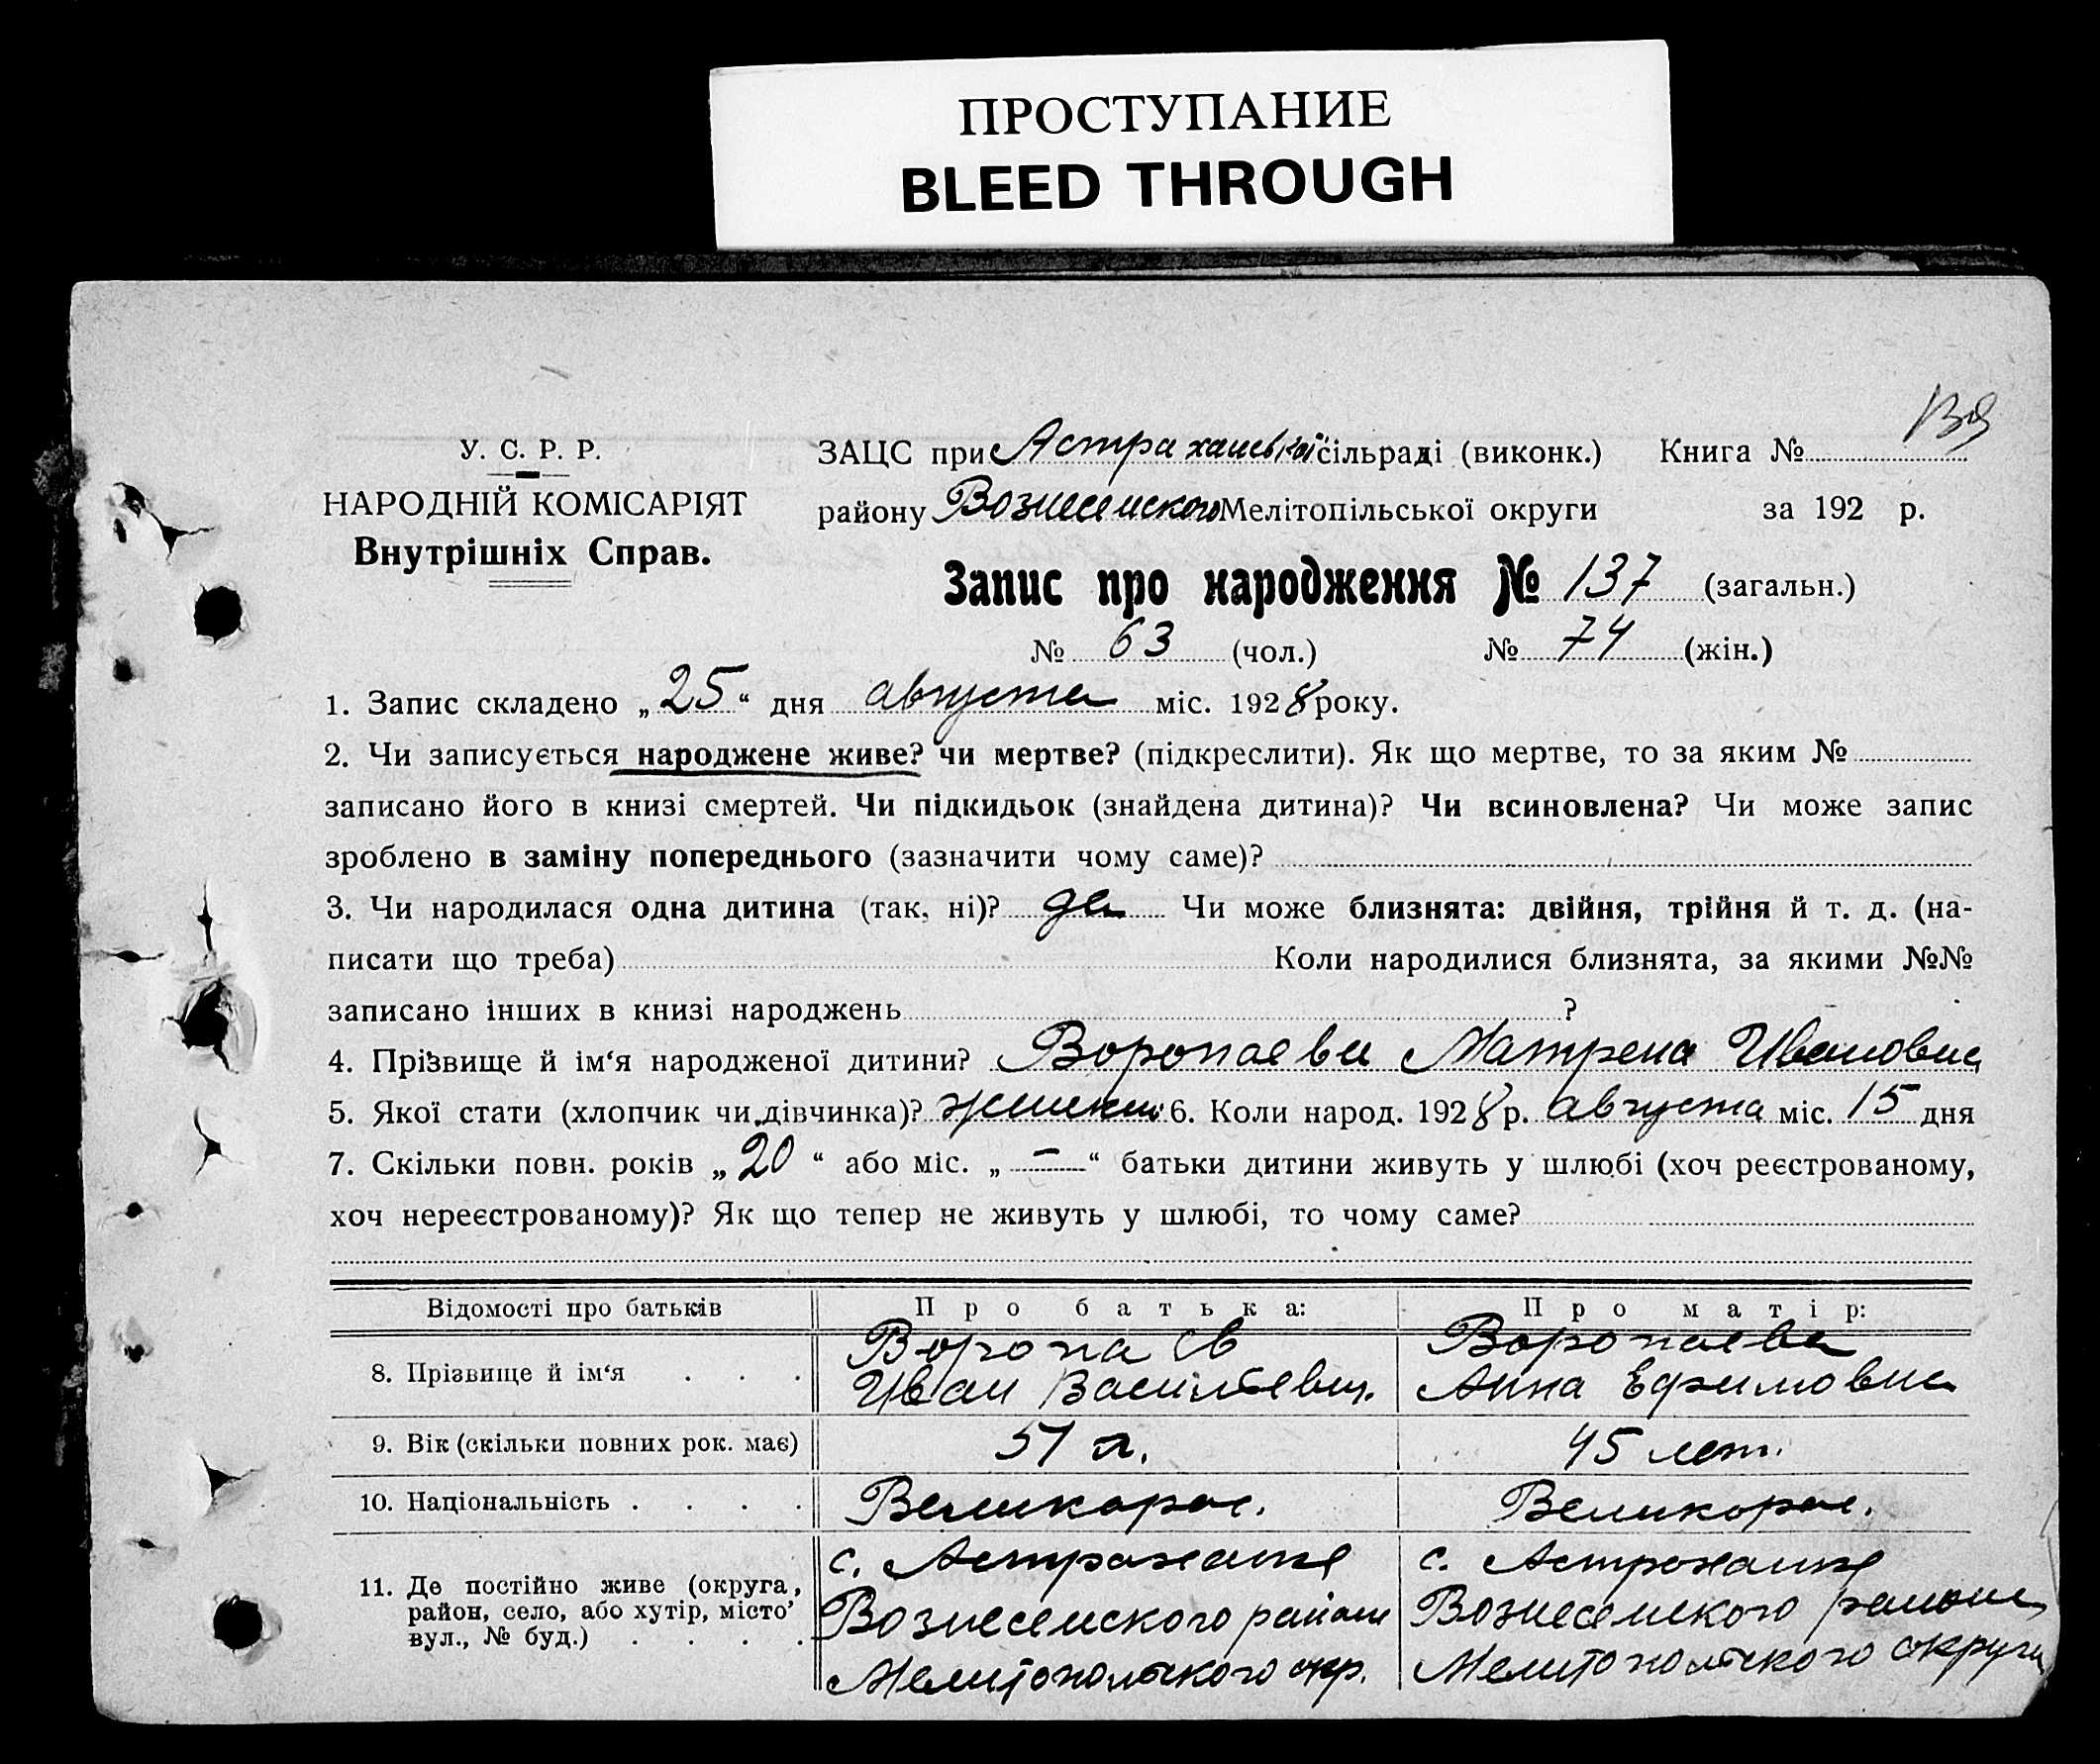 ПРОСТУПАНИЕ
BLEED THROUGH
139
У. С. Р. Р.
НАРОДНІЙ КОМІСАРІЯТ
Внутрішніх Справ.
ЗАЦС при Астраханській сільраді (виконк.) Книга №
району Вознесенского Мелітопільської округи за 192 р.
Запис про народження № 137 (загальн.)
№ 63 (чол.) № 74 (жін.)
1. Запис складено „25“ дня августа міс. 1928 року.
2. Чи записується народжене живе? чи мертве? (підкреслити). Як що мертве, то за яким №
записано його в книзі смертей. Чи підкидьок (знайдена дитина)? Чи всиновлена? Чи може запис
зроблено в заміну попереднього (зазначити чому саме)?
3. Чи народилася одна дитина (так, ні)? да Чи може близнята: двійня, трійня й т. д. (на-
писати що треба) Коли народилися близнята, за якими №№
записано інших в книзі народжень ?
4. Прізвище й ім‘я народженої дитини? Воропаева Матрена Ивановна
5. Якої стати (хлопчик чи дівчинка)? 6. Коли народ. 1928 р. августа міс. 15 дня
7. Скільки повн. років „20“ або міс. „—“ батьки дитини живуть у шлюбі (хоч реєстрованому,
хоч нереєстрованому)? Як що тепер не живуть у шлюбі, то чому саме?
Відомості про батьків Про батька: Про матір:
8. Прізвище й ім‘я . . . Воропаев Иван Васильевич. Воропаева Анна Ефимовна
9. Вік (скільки повних рок. має) 51 л. 45 лет.
10. Національність . . . . Великорос. Великорос.
11. Де постійно живе (округа, район, село, або хутір, місто, вул., № буд.) . . . .
с. Астраханка Вознесенского района Мелитопольского окр.
с. Астраханка Вознесенского района Мелитопольского округа